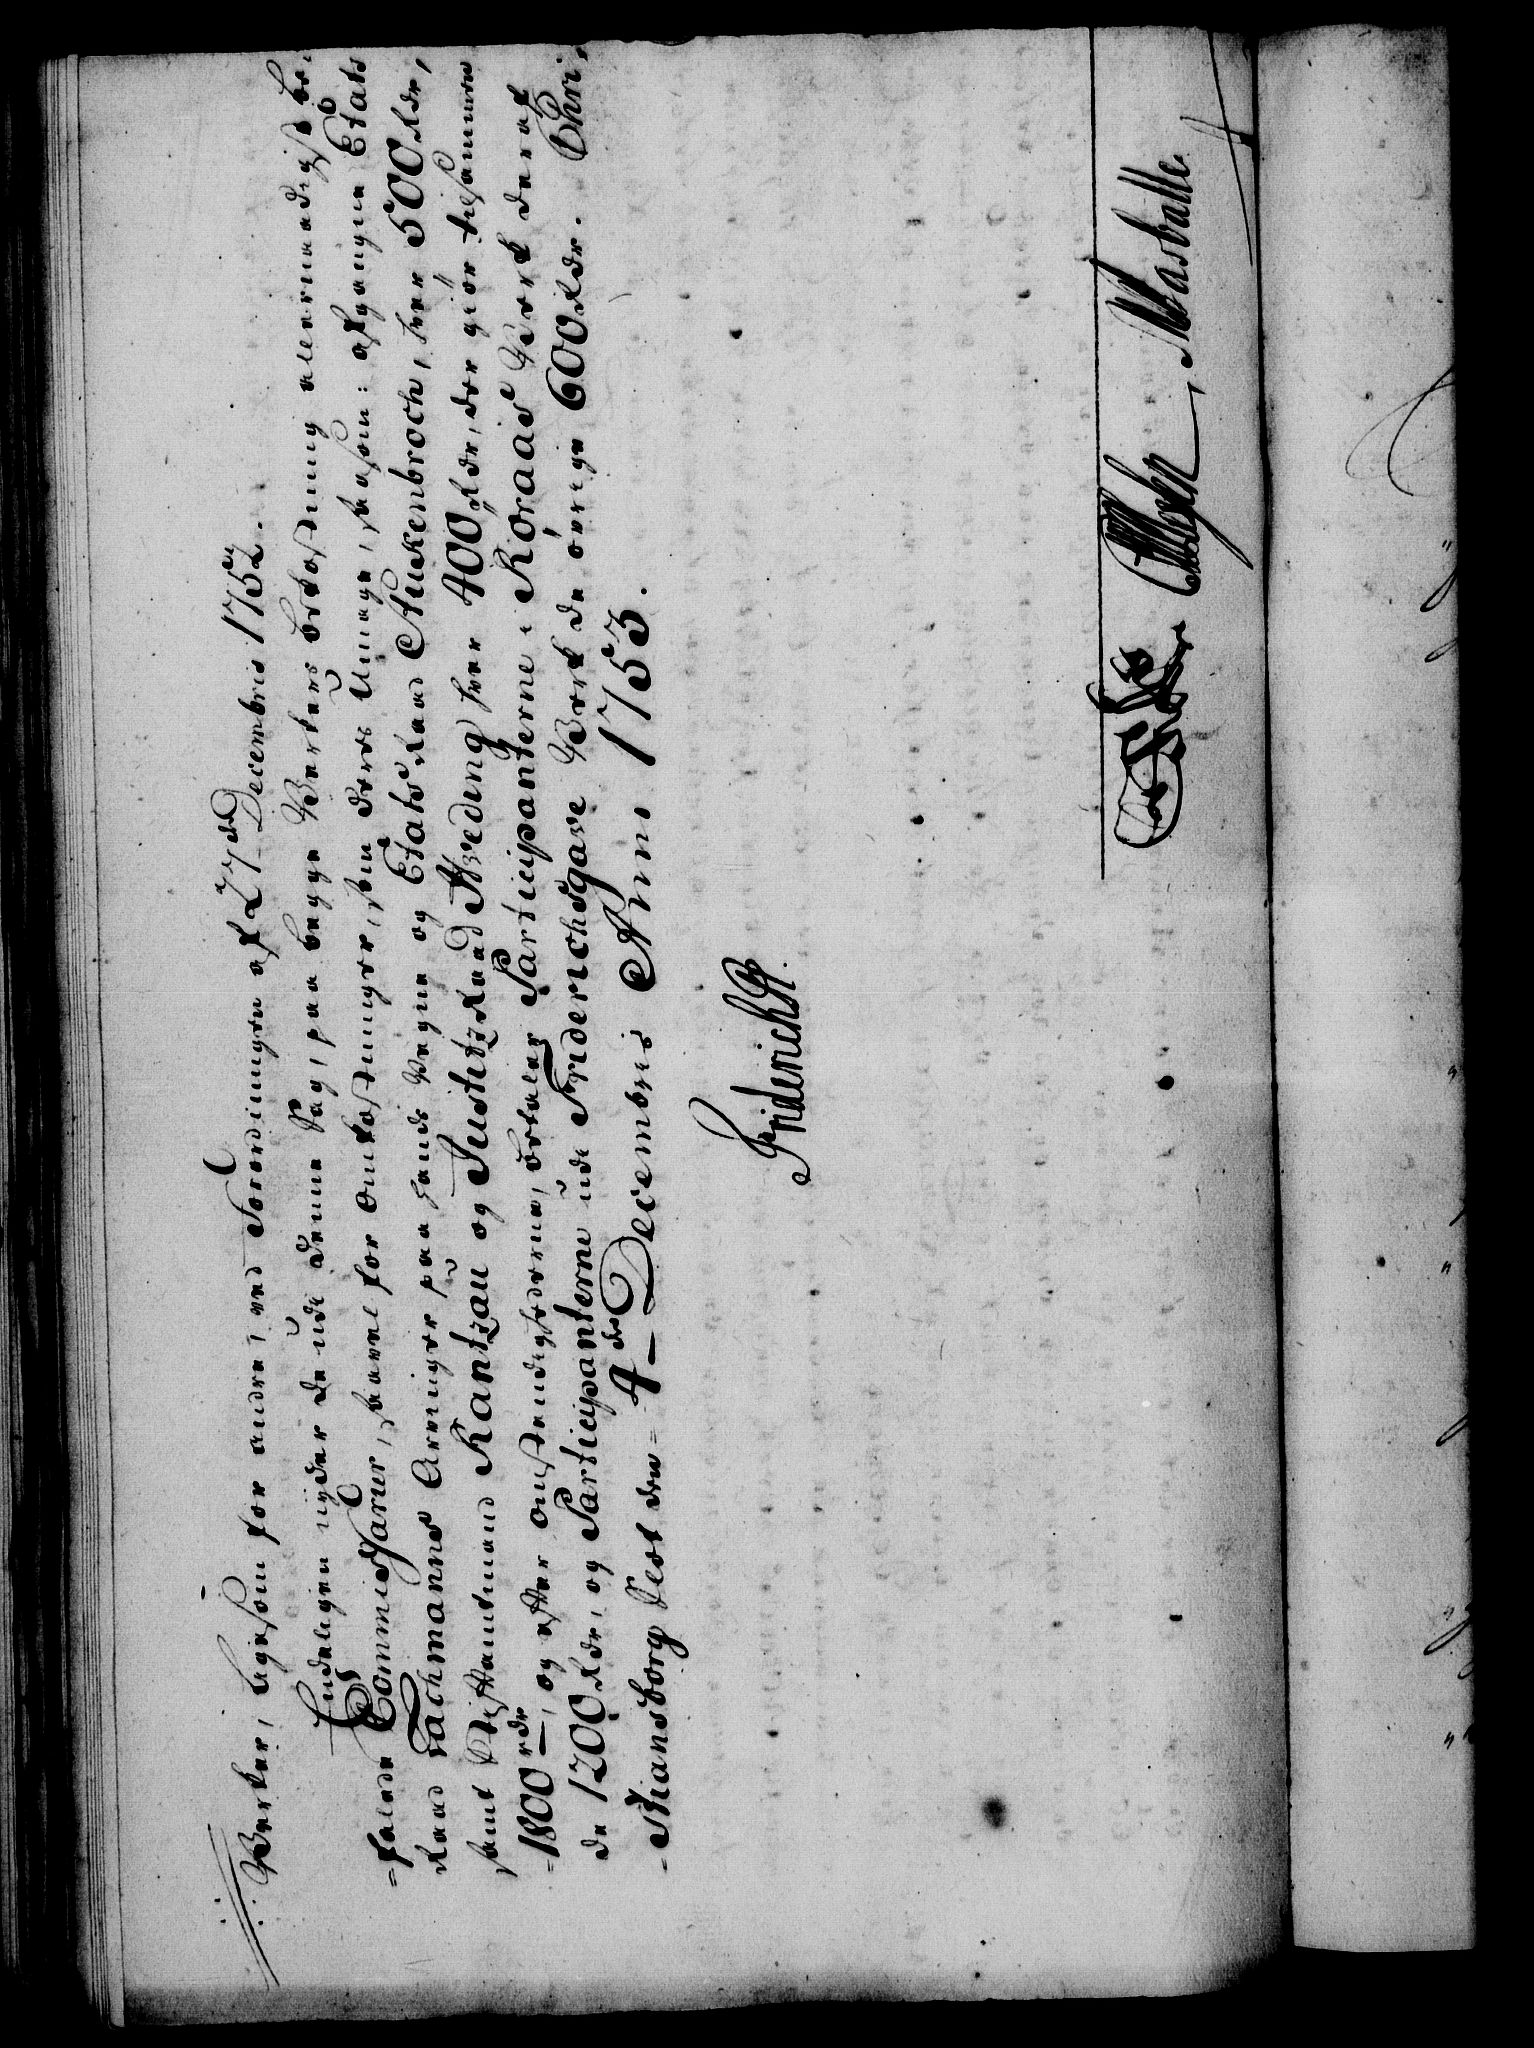 Werker, ligesom for andre, ved Forordningen af 27de Decembris 1752.
Endeligen nyder de udi denne Sag, paa begge Werkers bekostning allernaadigst be¬
=falede Commissarier, saavel for Omkostninger, som deres Umage, saasom: afgangne Etats
Raad Tachmanns Arvinger paa hands Vegne og Etats Raad Stukenbroch, hver 500 Rdr,
samt Stiftamtmand Rantzau og Justitz Raad Hveding hver 400 Rdr, der giør tilsammen
=1800 rdr, og efter omstændighederne, betaler Participanterne i Roraas Werk deraf
de 1200 Rdr, og Participanterne udi Friderichsgave Werk de øvrige 600 Rdr. Chri¬
=stiansborg Slot den 4de Decembris Anno 1753.
Friderich R.
Holstein, Masballe